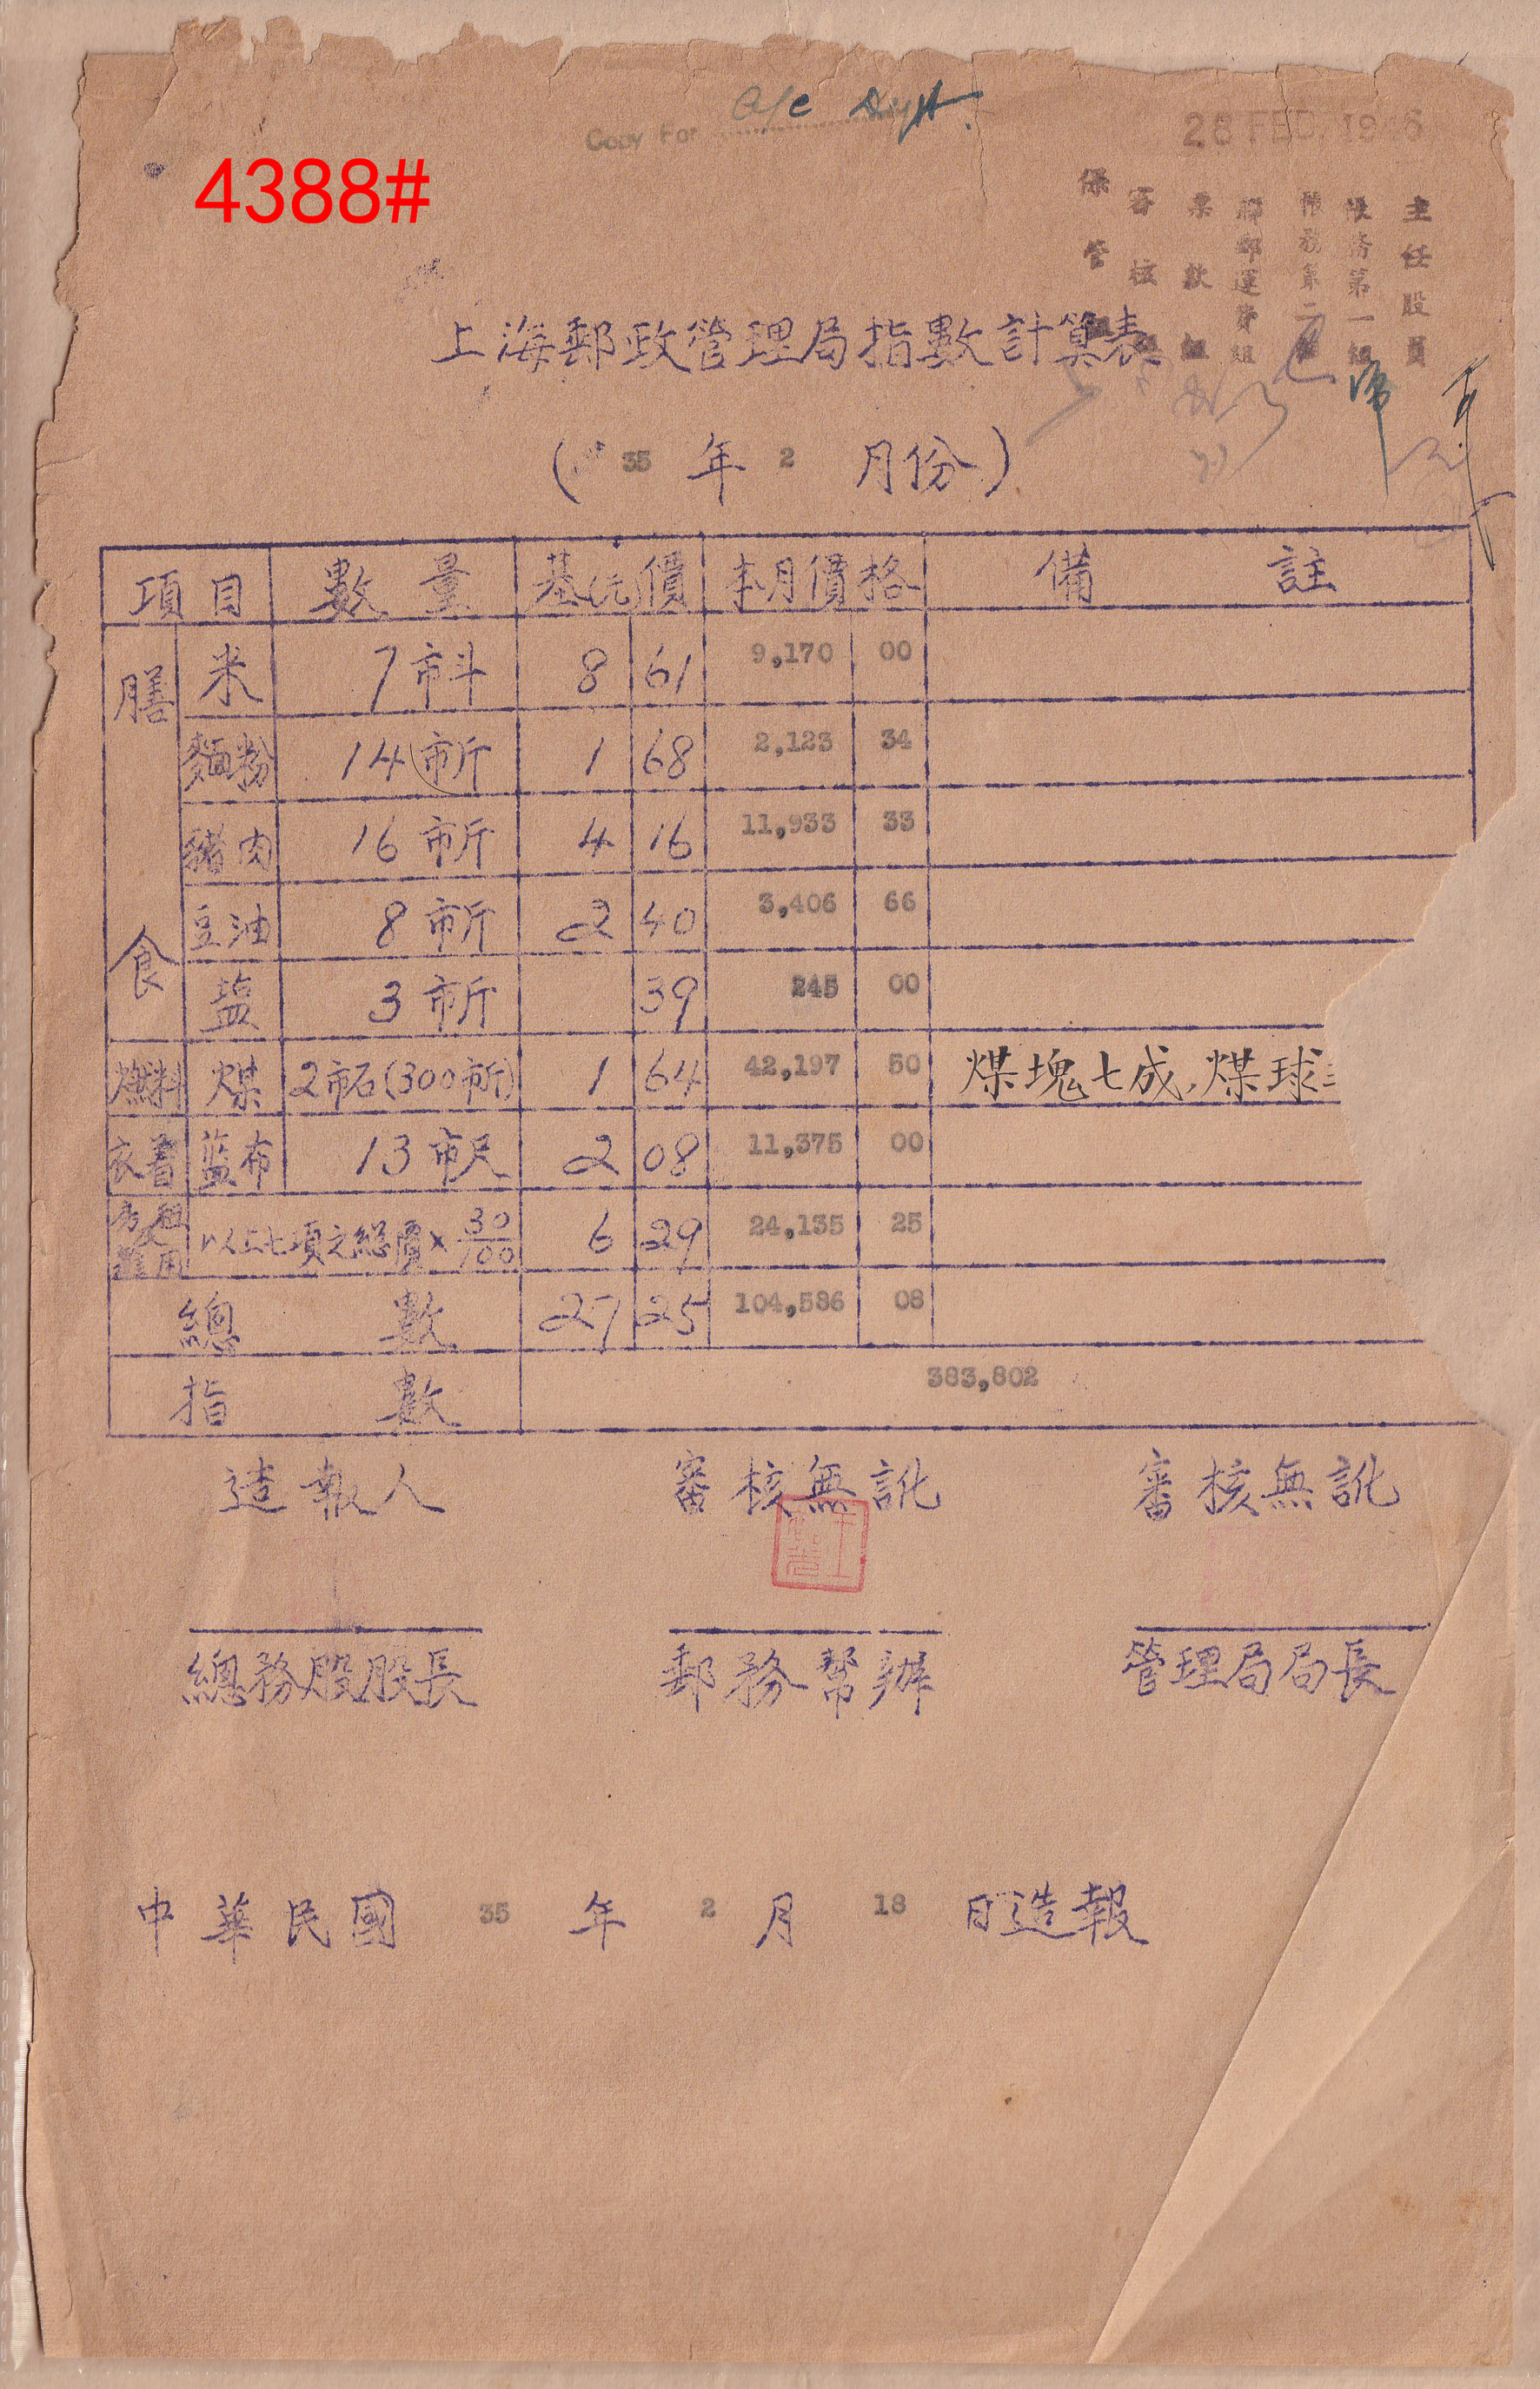 a/c Dept.
Copy For
28 FEB. 1946
4388#
主任股員
帳務第一組
帳務第二組
聯郵運費組
票款組
審核組
保管組
上海郵政管理局指數計算表
( 35 年 2 月份 )
項目 數量 基(元)價 本月價格 備註
膳食 米 7市斗 8 61 9,170 00
麵粉 14市斤 1 68 2,123 34
豬肉 16市斤 4 16 11,933 33
豆油 8市斤 2 40 3,406 66
盐 3市斤 39 245 00
燃料 煤 2市石(300市斤) 1 64 42,197 50 煤塊七成,煤球三
衣着 蓝布 13市尺 2 08 11,375 00
房租雜用 以上七項之総價×30/100 6 29 24,135 25
總數 27 25 104,586 08
指數 383,802
造報人 審核無訛 審核無訛
總務股股長 郵務幫辦 管理局局長
中華民國 35 年 2 月 18 日造報